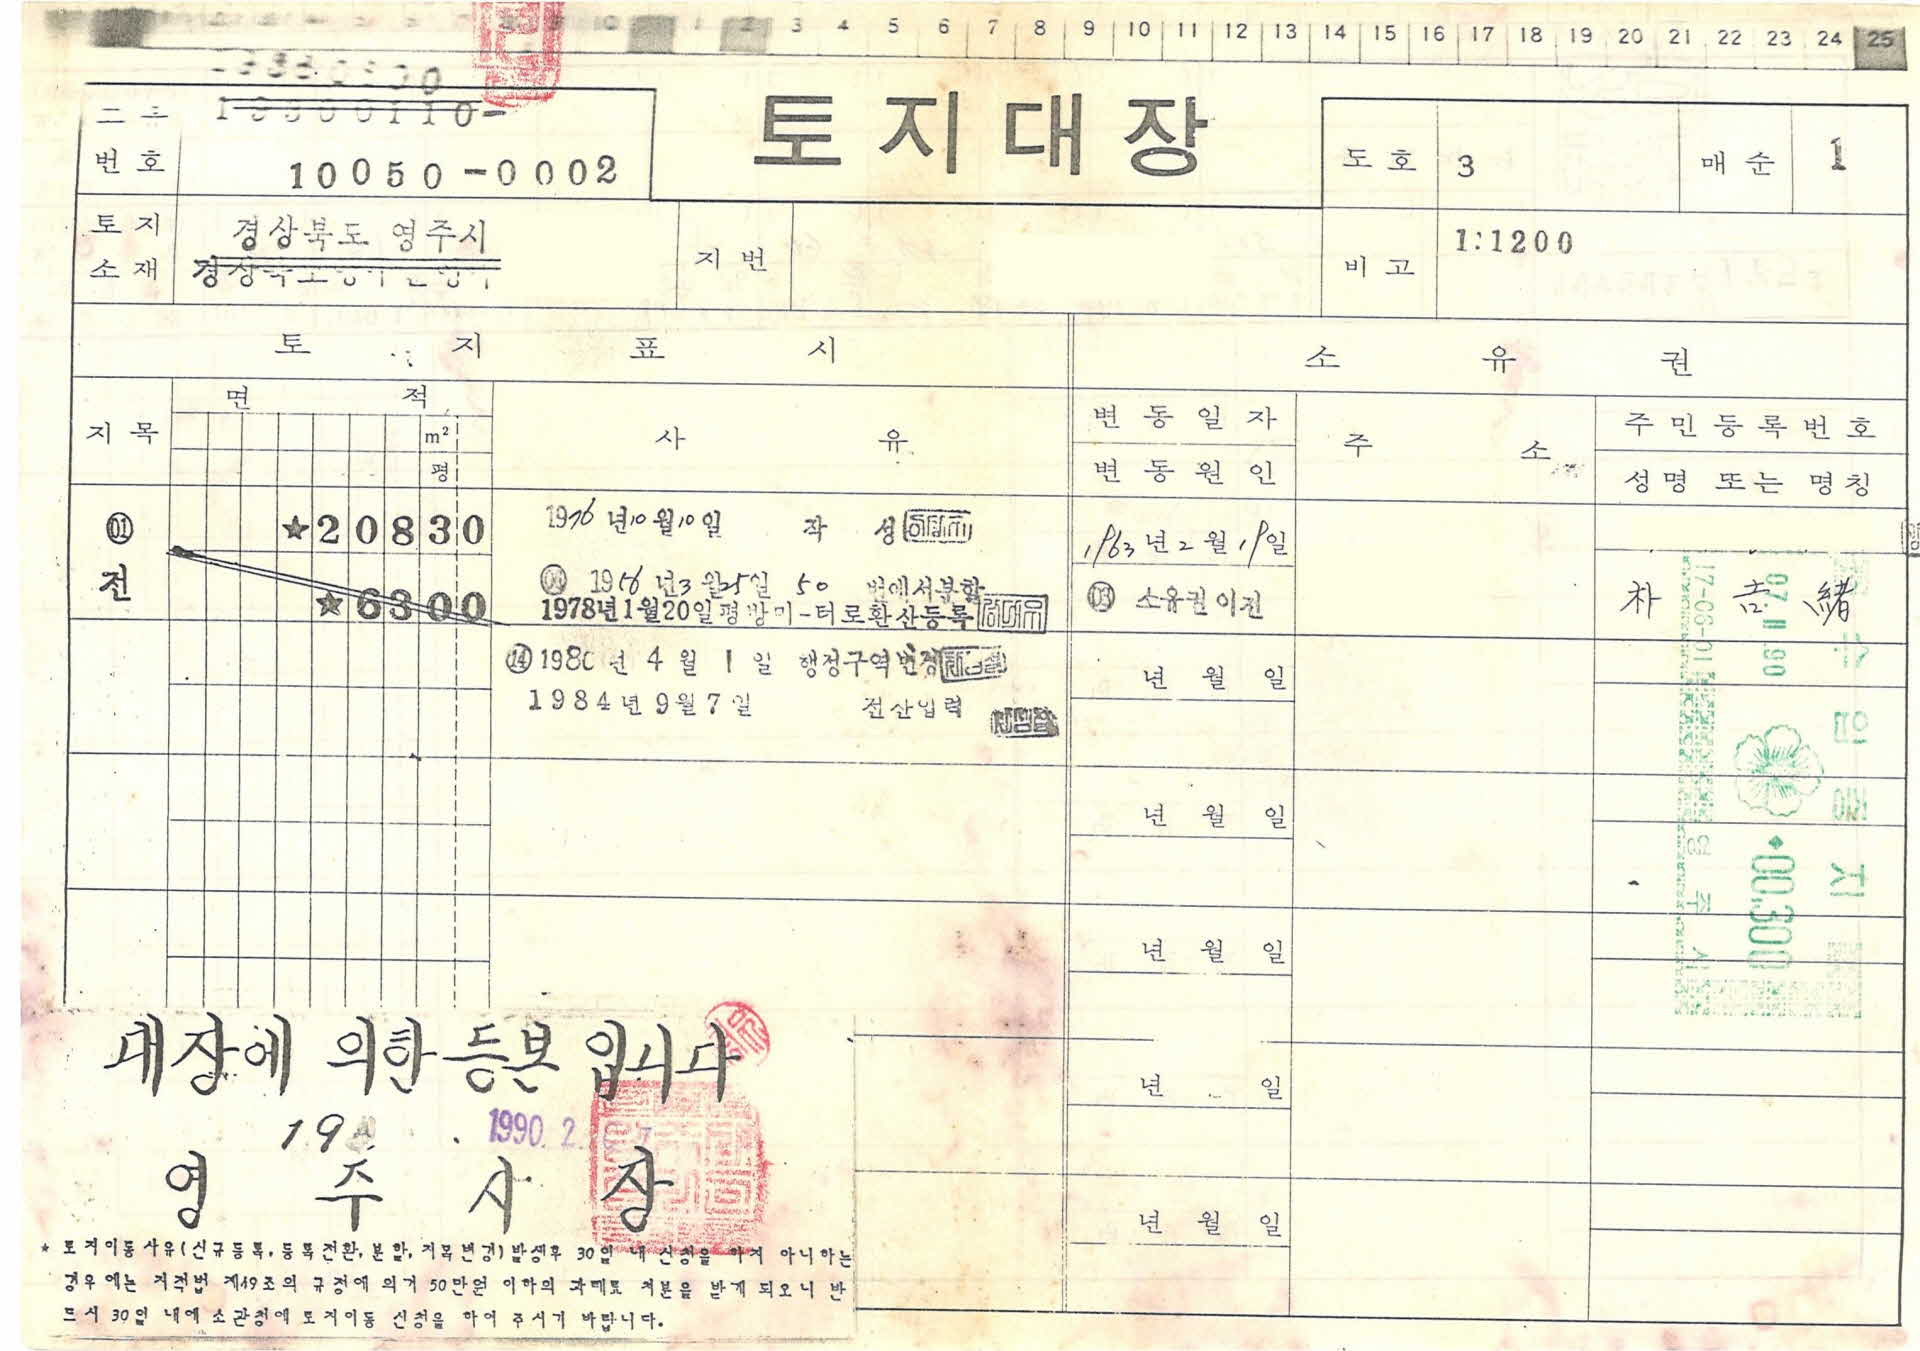 3 4 5 6 7 8 9 10 11 12 13 14 15 16 17 18 19 20 21 22 23 24 25
토지대장
번호
10050-0002
도호 3
매순 1
토지 소재
경상북도 영주시
지번
비고
1:1200
토지표시
소유권
지목
면적
m²
평
사유
변동일자
변동원인
주소
주민등록번호
성명 또는 명칭
01
전
★20830
★6300
1976년10월10일 작성
년3월25일 50 번에서분할
1978년1월20일평방미-터로환산등록
14 1980년 4월 1일 행정구역변경
1984년9월7일 전산입력
1963년2월19일
03 소유권이전
朴 吉 緖
년 월 일
년 월 일
년 월 일
년 일
년 월 일
수입증지
07.11.90
◆00,300
영주시
대장에 의한 등본입니다
19
1990. 2.
영주시장
★ 토지이동사유(신규등록, 등록전환, 분할, 지목변경)발생후 30일 내 신청을 하지 아니하는
경우에는 지적법 제49조의 규정에 의거 50만원 이하의 과태료 처분을 받게 되오니 반
드시 30일 내에 소관청에 토지이동 신청을 하여 주시기 바랍니다.